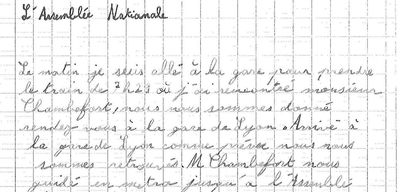 L'Assemblée Nationale
Le matin je suis allé à la gare pour prendre
le train de 7h43 où j'ai rencontré monsieur
Chambefort, nous nous sommes donné
rendez-vous à la gare de Lyon. Arrivé à
la gare de Lyon comme prévu nous nous
sommes retrouvés. M. Chambefort nous
guidé en metro jusqu'à l'Assemblé